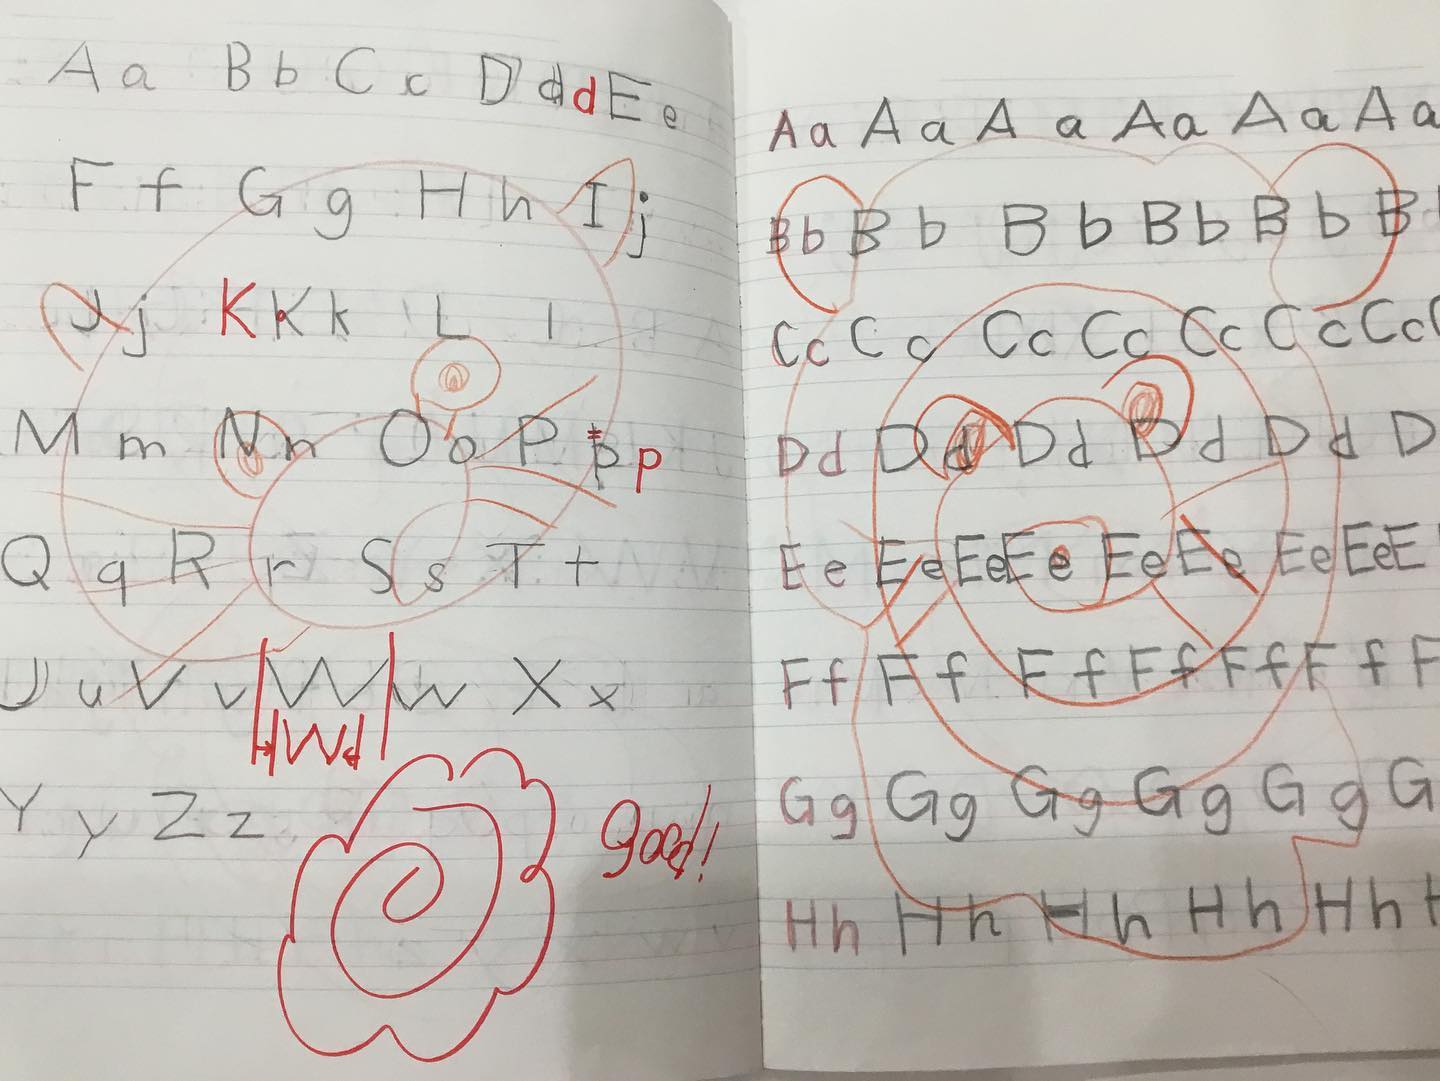 A a B b C c D d d E e
F f G g H h I j
J j K K k L l
M m N n O o P p p
Q q R r S s T t
U u V v W w X x
W
Y y Z z
good!
A a A a A a A a A a A a
B b B b B b B b B b B
C c C c C c C c C c C c C c
D d D d D d D d D d D
E e E e E e E e E e E e E e E e E
F f F f F f F f F f F f F
G g G g G g G g G g G
H h H h H h H h H h H